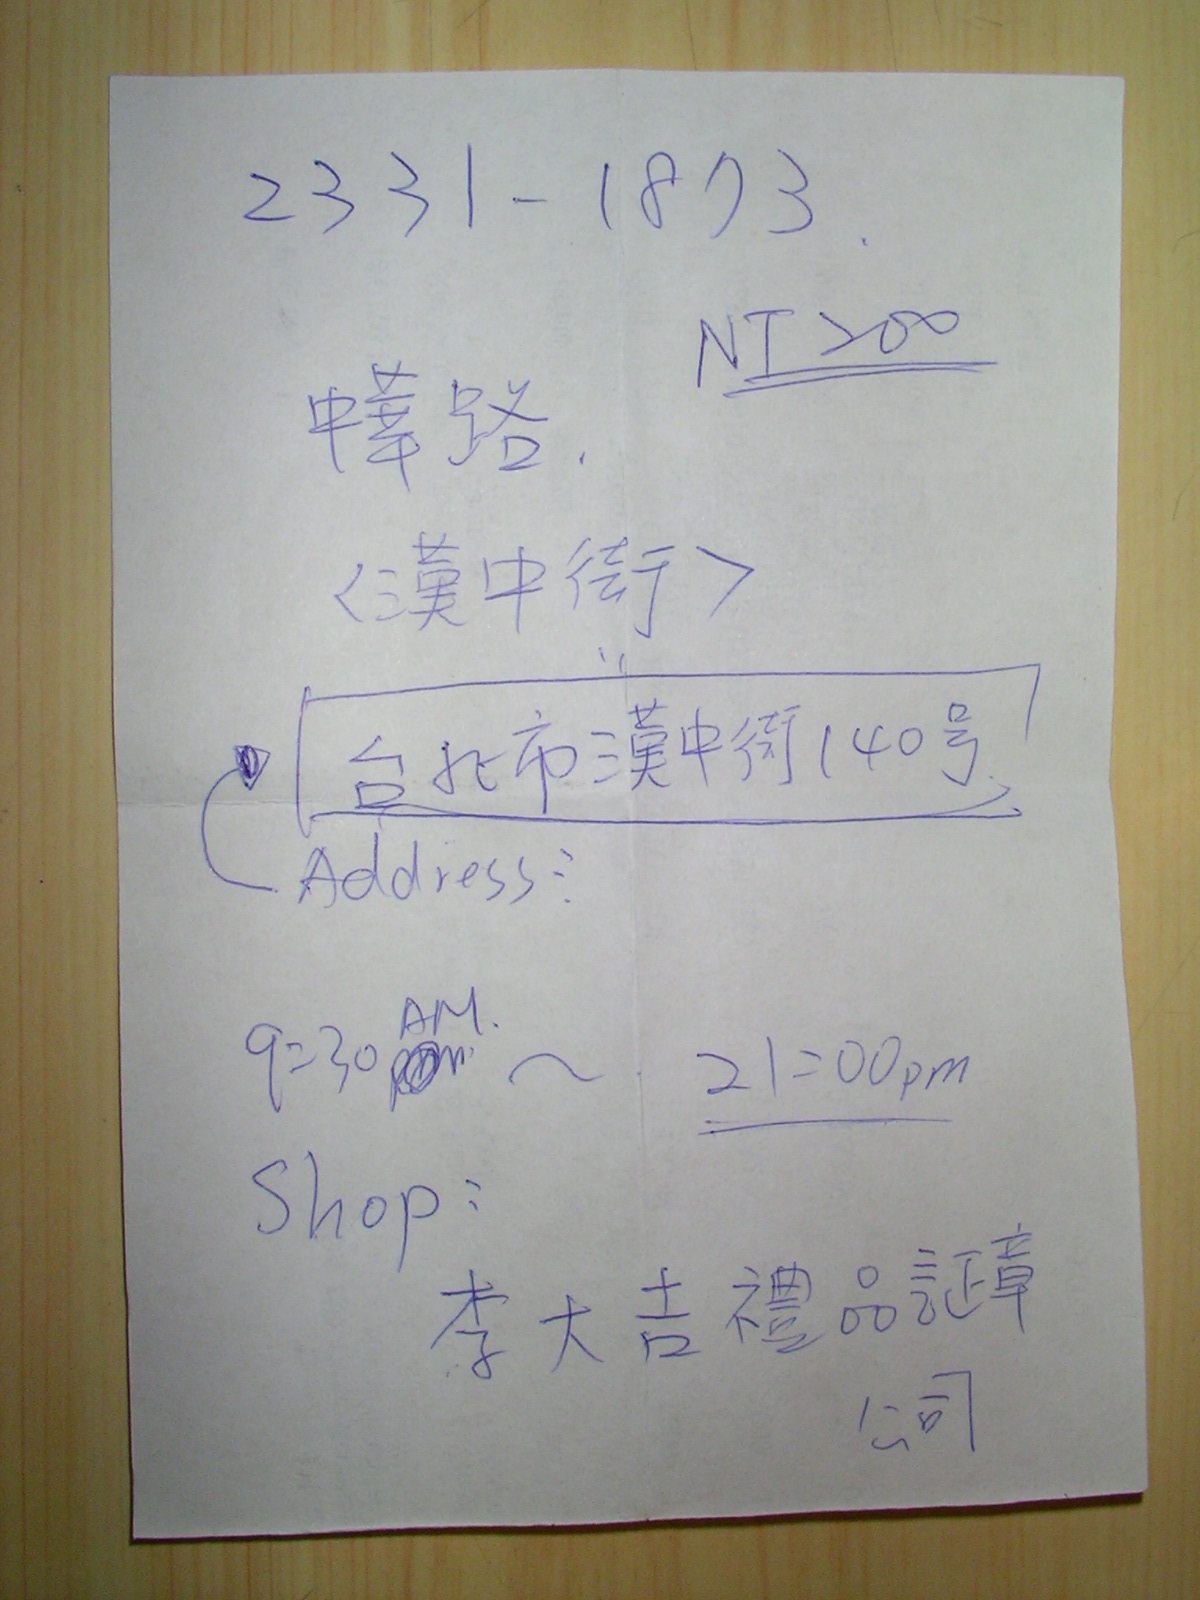 2331-1873.
NT 200
中華路.
<漢中街>
台北市漢中街140号
Address:
9:30 AM. ~ 21:00pm
Shop:
李大吉禮品証章
公司